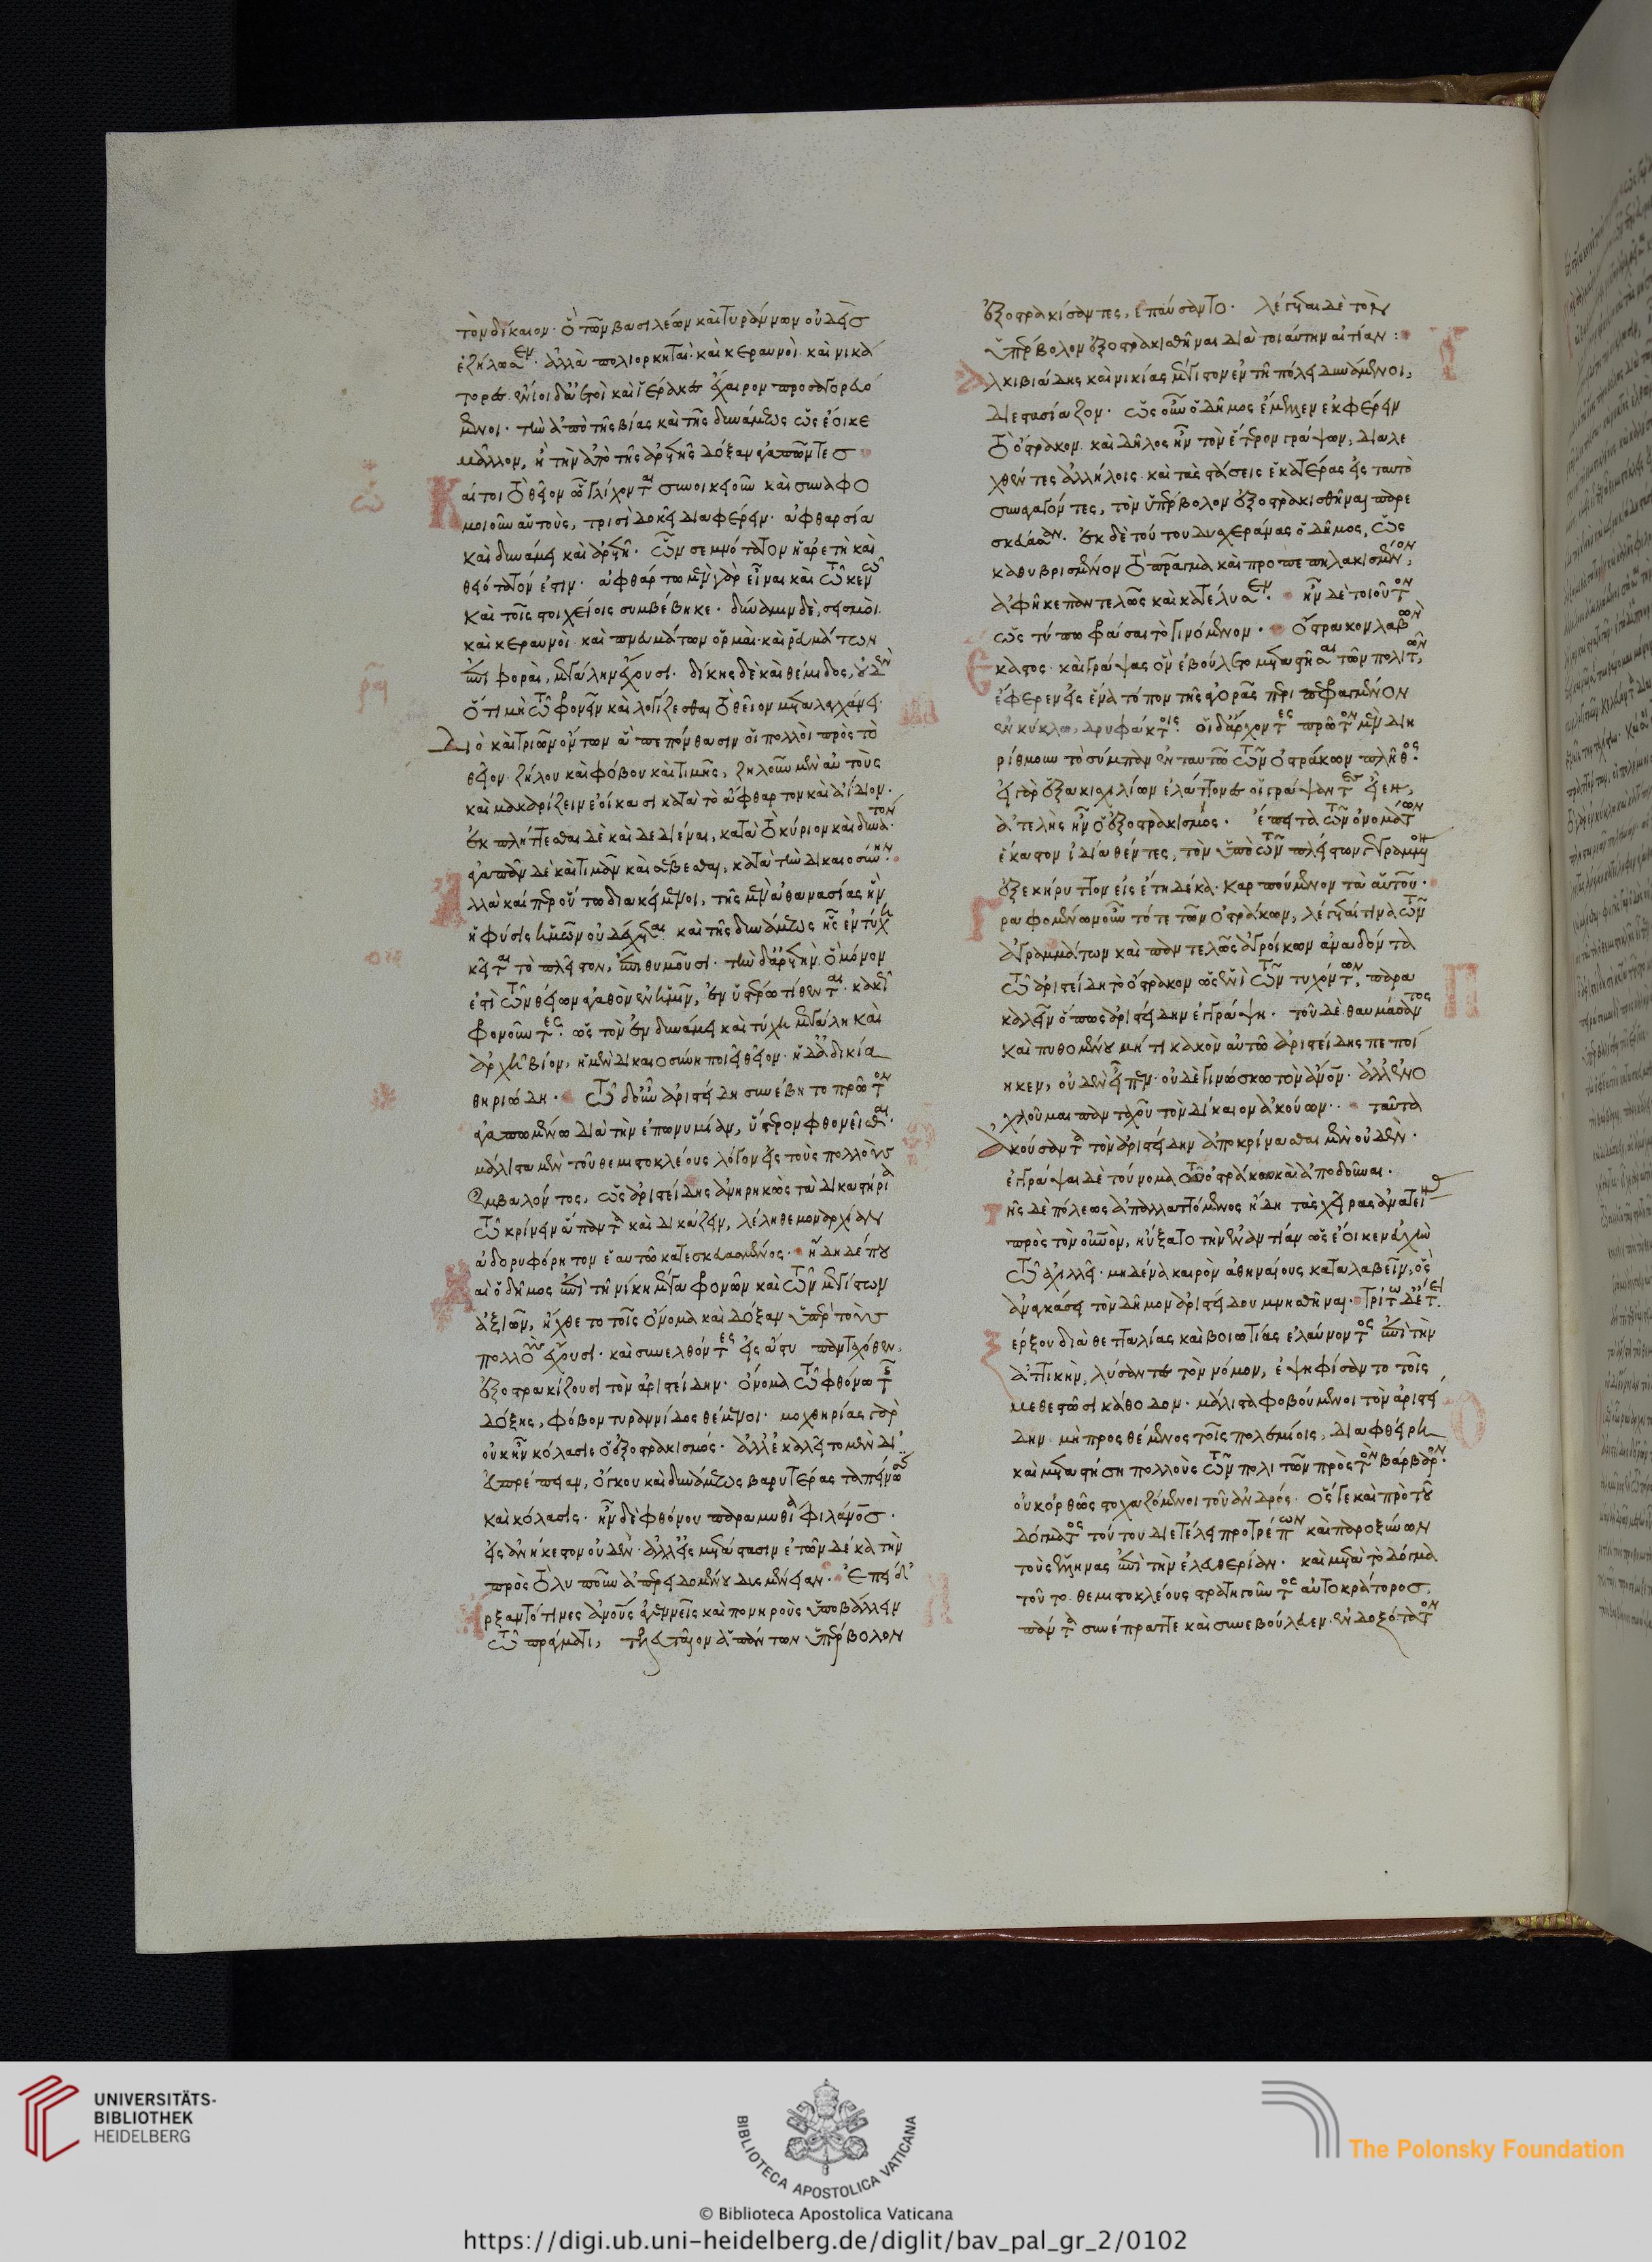 τὸν δίκαιον· ὃ τῶν βασιλέων καὶ τυράννων οὐδεὶς
ἐζήλωσεν· ἀλλὰ πολιορκηταὶ· καὶ κεραυνοὶ· καὶ νικά
τορες· ἔνιοι δ' ἀετοὶ καὶ ἱέρακες ἔχαιρον προσαγορευό
μενοι· τὴν ἀπὸ τῆς βίας καὶ τῆς δυνάμεως ὡς ἔοικε
μᾶλλον, ἢ τὴν ἀπὸ τῆς ἀρετῆς δόξαν ἀγαπῶντες
Καίτοι τὸ θεῖον ᾧ γλίχονται συνοικειοῦν καὶ συναφο
μοιοῦν αὑτοὺς, τρισὶ δοκεῖ διαφέρειν· ἀφθαρσία
καὶ δυνάμει καὶ ἀρετῇ· ὧν σεμνότατον ἡ ἀρετὴ καὶ
θειότατόν ἐστιν· ἀφθάρτω μὲν γὰρ εἶναι καὶ τῶ κενῶ
καὶ τοῖς στοιχείοις συμβέβηκε· δύναμιν δὲ, σεισμοὶ
καὶ κεραυνοὶ· καὶ πνευμάτων ὁρμαὶ· καὶ ῥευμάτων
ἐπιφοραὶ, μεγάλην ἔχουσι. δίκης δὲ καὶ θέμιδος, οὐδὲν
ὅτι μὴ τῶ φρονεῖν καὶ λογίζεσθαι τὸ θεῖον μεταλαγχάνει·
Διὸ καὶ τριῶν ὄντων ἃ πεπόνθασιν οἱ πολλοὶ πρὸς τὸ
θεῖον· ζήλου καὶ φόβου καὶ τιμῆς, ζηλοῦν μὲν αὐτοὺς
καὶ μακαρίζειν ἐοίκασι κατὰ τὸ ἄφθαρτον καὶ ἀίδιον·
ἐκπλήττεσθαι δὲ καὶ δεδιέναι, κατὰ τὸ κύριον καὶ δυνατόν·
ἀγαπᾶν δὲ καὶ τιμᾶν καὶ σέβεσθαι, κατὰ τὴν δικαιοσύνην·
Ἀλλὰ καίπερ οὕτω διακείμενοι, τῆς μὲν ἀθανασίας ἣν
ἡ φύσις ἡμῶν οὐ δέχεται· καὶ τῆς δυνάμεως ἧς ἐν τύχη
κεῖται τὸ πλεῖστον, ἐπιθυμοῦσι· τὴν δ' ἀρετὴν ὃ μόνον
ἐστὶ τῶν θείων ἀγαθὸν ἐν ἡμῖν, ἐν ὑστέρω τίθενται· κακῶς
φρονοῦντες· ὡς τὸν ἐν δυνάμει καὶ τύχη μεγάλη καὶ
ἀρχῆ βίον, ἡ μὲν δικαιοσύνη ποιεῖ θεῖον· ἡ δ' ἀδικία
θηριώδη· Τῶ δ' οὖν ἀριστείδη συνέβη τὸ πρῶτον
ἀγαπωμένω διὰ τὴν ἐπωνυμίαν, ὕστερον φθονεῖσθαι·
μάλιστα μὲν τοῦ θεμιστοκλέους λόγον εἰς τοὺς πολλοὺς
ἐμβαλόντος, ὡς ἀριστείδης ἀνηρηκὼς τὰ δικαστήρια
τῶ κρίνειν ἅπαντα καὶ δικάζειν, λέληθε μοναρχίαν
ἀδορυφόρητον ἑαυτῶ κατεσκευασμένος· ἤδη δέ που
καὶ ὁ δῆμος ἐπὶ τῆ νίκη μέγα φρονῶν καὶ τῶν μεγίστων
ἀξιῶν, ἤχθετο τοῖς ὄνομα καὶ δόξαν ὑπὲρ τοὺς
πολλοὺς ἔχουσι· καὶ συνελθόντες εἰς ἄστυ πανταχόθεν,
ἐξοστρακίζουσι τὸν ἀριστείδην· ὄνομα τῶ φθόνω τῆς
δόξης, φόβον τυραννίδος θέμενοι· μοχθηρίας γὰρ
οὐκ ἦν κόλασις ὁ ἐξοστρακισμός· ἀλλ' ἐκαλεῖτο μὲν δι'
εὐπρέπειαν, ὄγκου καὶ δυνάμεως βαρυτέρας ταπείνωσις
καὶ κόλασις· ἦν δὲ φθόνου παραμυθία φιλάνθρωπος·
εἰς ἀνήκεστον οὐδὲν· ἀλλ' εἰς μετάστασιν ἐτῶν δέκα τὴν
πρὸς τὸ λυποῦν ἀπερειδομένου δυσμένειαν· Ἐπεὶ δ'
ἤρξαντό τινες ἀνθρώπους ἀγεννεῖς καὶ πονηροὺς ὑποβάλλειν
τῶ πράγματι, τελευταῖον ἁπάντων ὑπέρβολον
ἐξοστρακίσαντες, ἐπαύσαντο· λέγεται δὲ τὸν
ὑπέρβολον ἐξοστρακισθῆναι διὰ τοιαύτην αἰτίαν:
Ἀλκιβιάδης καὶ νικίας μέγιστον ἐν τῆ πόλει δυνάμενοι,
διεστασίαζον· ὡς οὖν ὁ δῆμος ἔμελλεν ἐκφέρειν
τὸ ὄστρακον· καὶ δῆλος ἦν τὸν ἕτερον γράψων, διαλε
χθέντες ἀλλήλοις· καὶ τὰς στάσεις ἑκατέρας εἰς ταυτὸ
συναγαγόντες, τὸν ὑπέρβολον ἐξοστρακισθῆναι παρε
σκεύασαν· ἐκ δὲ τούτου δυσχεράνας ὁ δῆμος, ὡς
καθυβρισμένον τὸ πρᾶγμα καὶ προπεπηλακισμένον,
ἀφῆκε παντελῶς καὶ κατέλυσεν· ἦν δὲ τοιοῦτον
ὡς τύπω φράσαι τὸ γινόμενον· Ὄστρακον λαβὼν
ἕκαστος· καὶ γράψας ὃν ἐβούλετο μεταστῆσαι τῶν πολιτῶν,
ἔφερεν εἰς ἕνα τόπον τῆς ἀγορᾶς περιπεφραγμένον
ἐν κύκλω, δρυφάκτοις· οἱ δ' ἄρχοντες πρῶτον μὲν διη
ρίθμουν τὸ σύμπαν ἐν ταυτῶ τῶν ὀστράκων πλῆθος·
εἰ γὰρ ἑξακισχιλίων ἐλάττονες οἱ γράψαντες εἶεν,
ἀτελὴς ἦν ὁ ἐξοστρακισμός· ἔπειτα τῶν ὀνομάτων
ἕκαστον ἰδία θέντες, τὸν ὑπὸ τῶν πλείστων γεγραμμένον
ἐξεκήρυττον εἰς ἔτη δέκα· καρπούμενον τὰ αὑτοῦ·
Γραφομένων οὖν τότε τῶν ὀστράκων, λέγεταί τινα τῶν
ἀγραμμάτων καὶ παντελῶς ἀγροίκων ἀναδόντα
τῶ ἀριστείδη τὸ ὄστρακον ὡς ἑνὶ τῶν τυχόντων, παρα
καλεῖν ὅπως ἀριστείδην ἐγγράψη· τοῦ δὲ θαυμάσαντος
καὶ πυθομένου μή τι κακὸν αὐτῶ ἀριστείδης πεποί
ηκεν, οὐδὲν εἶπεν· οὐδὲ γινώσκω τὸν ἄνθρωπον· ἀλλ' ἐνο
χλοῦμαι πανταχοῦ τὸν δίκαιον ἀκούων· ταῦτα
ἀκούσαντα τὸν ἀριστείδην ἀποκρίνασθαι μὲν οὐδὲν·
ἐγγράψαι δὲ τοὔνομα τῶ ὀστράκω καὶ ἀποδοῦναι·
Τῆς δὲ πόλεως ἀπαλλαττόμενος ἤδη τὰς χεῖρας ἀνατείνας
πρὸς τὸν οὐρανὸν, ηὔξατο τὴν ἐναντίαν ὡς ἔοικεν εὐχὴν
τῶ ἀχιλλεῖ· μηδένα καιρὸν ἀθηναίους καταλαβεῖν, ὃς
ἀναγκάσει τὸν δῆμον ἀριστείδου μνησθῆναι· Τρίτω δ' ἔτει
ξέρξου διὰ θετταλίας καὶ βοιωτίας ἐλαύνοντος ἐπὶ τὴν
ἀττικὴν, λύσαντες τὸν νόμον, ἐψηφίσαντο τοῖς
μεθεστῶσι κάθοδον· μάλιστα φοβούμενοι τὸν ἀριστεί
δην· μὴ προσθέμενος τοῖς πολεμίοις, διαφθείρη
καὶ μεταστήση πολλοὺς τῶν πολιτῶν πρὸς τὸν βάρβαρον·
οὐκ ὀρθῶς στοχαζόμενοι τοῦ ἀνδρός· ὅς γε καὶ πρὸ τοῦ
δόγματος τούτου διετέλει προτρέπων καὶ παροξύνων
τοὺς ἕλληνας ἐπὶ τὴν ἐλευθερίαν· καὶ μετὰ τὸ δόγμα
τοῦτο θεμιστοκλέους στρατηγοῦντος αὐτοκράτορος,
πάντα συνέπραττε καὶ συνεβούλευεν· ἐνδοξότατον
UNIVERSITÄTS-
BIBLIOTHEK
HEIDELBERG
BIBLIOTECA APOSTOLICA VATICANA
The Polonsky Foundation
© Biblioteca Apostolica Vaticana
https://digi.ub.uni-heidelberg.de/diglit/bav_pal_gr_2/0102